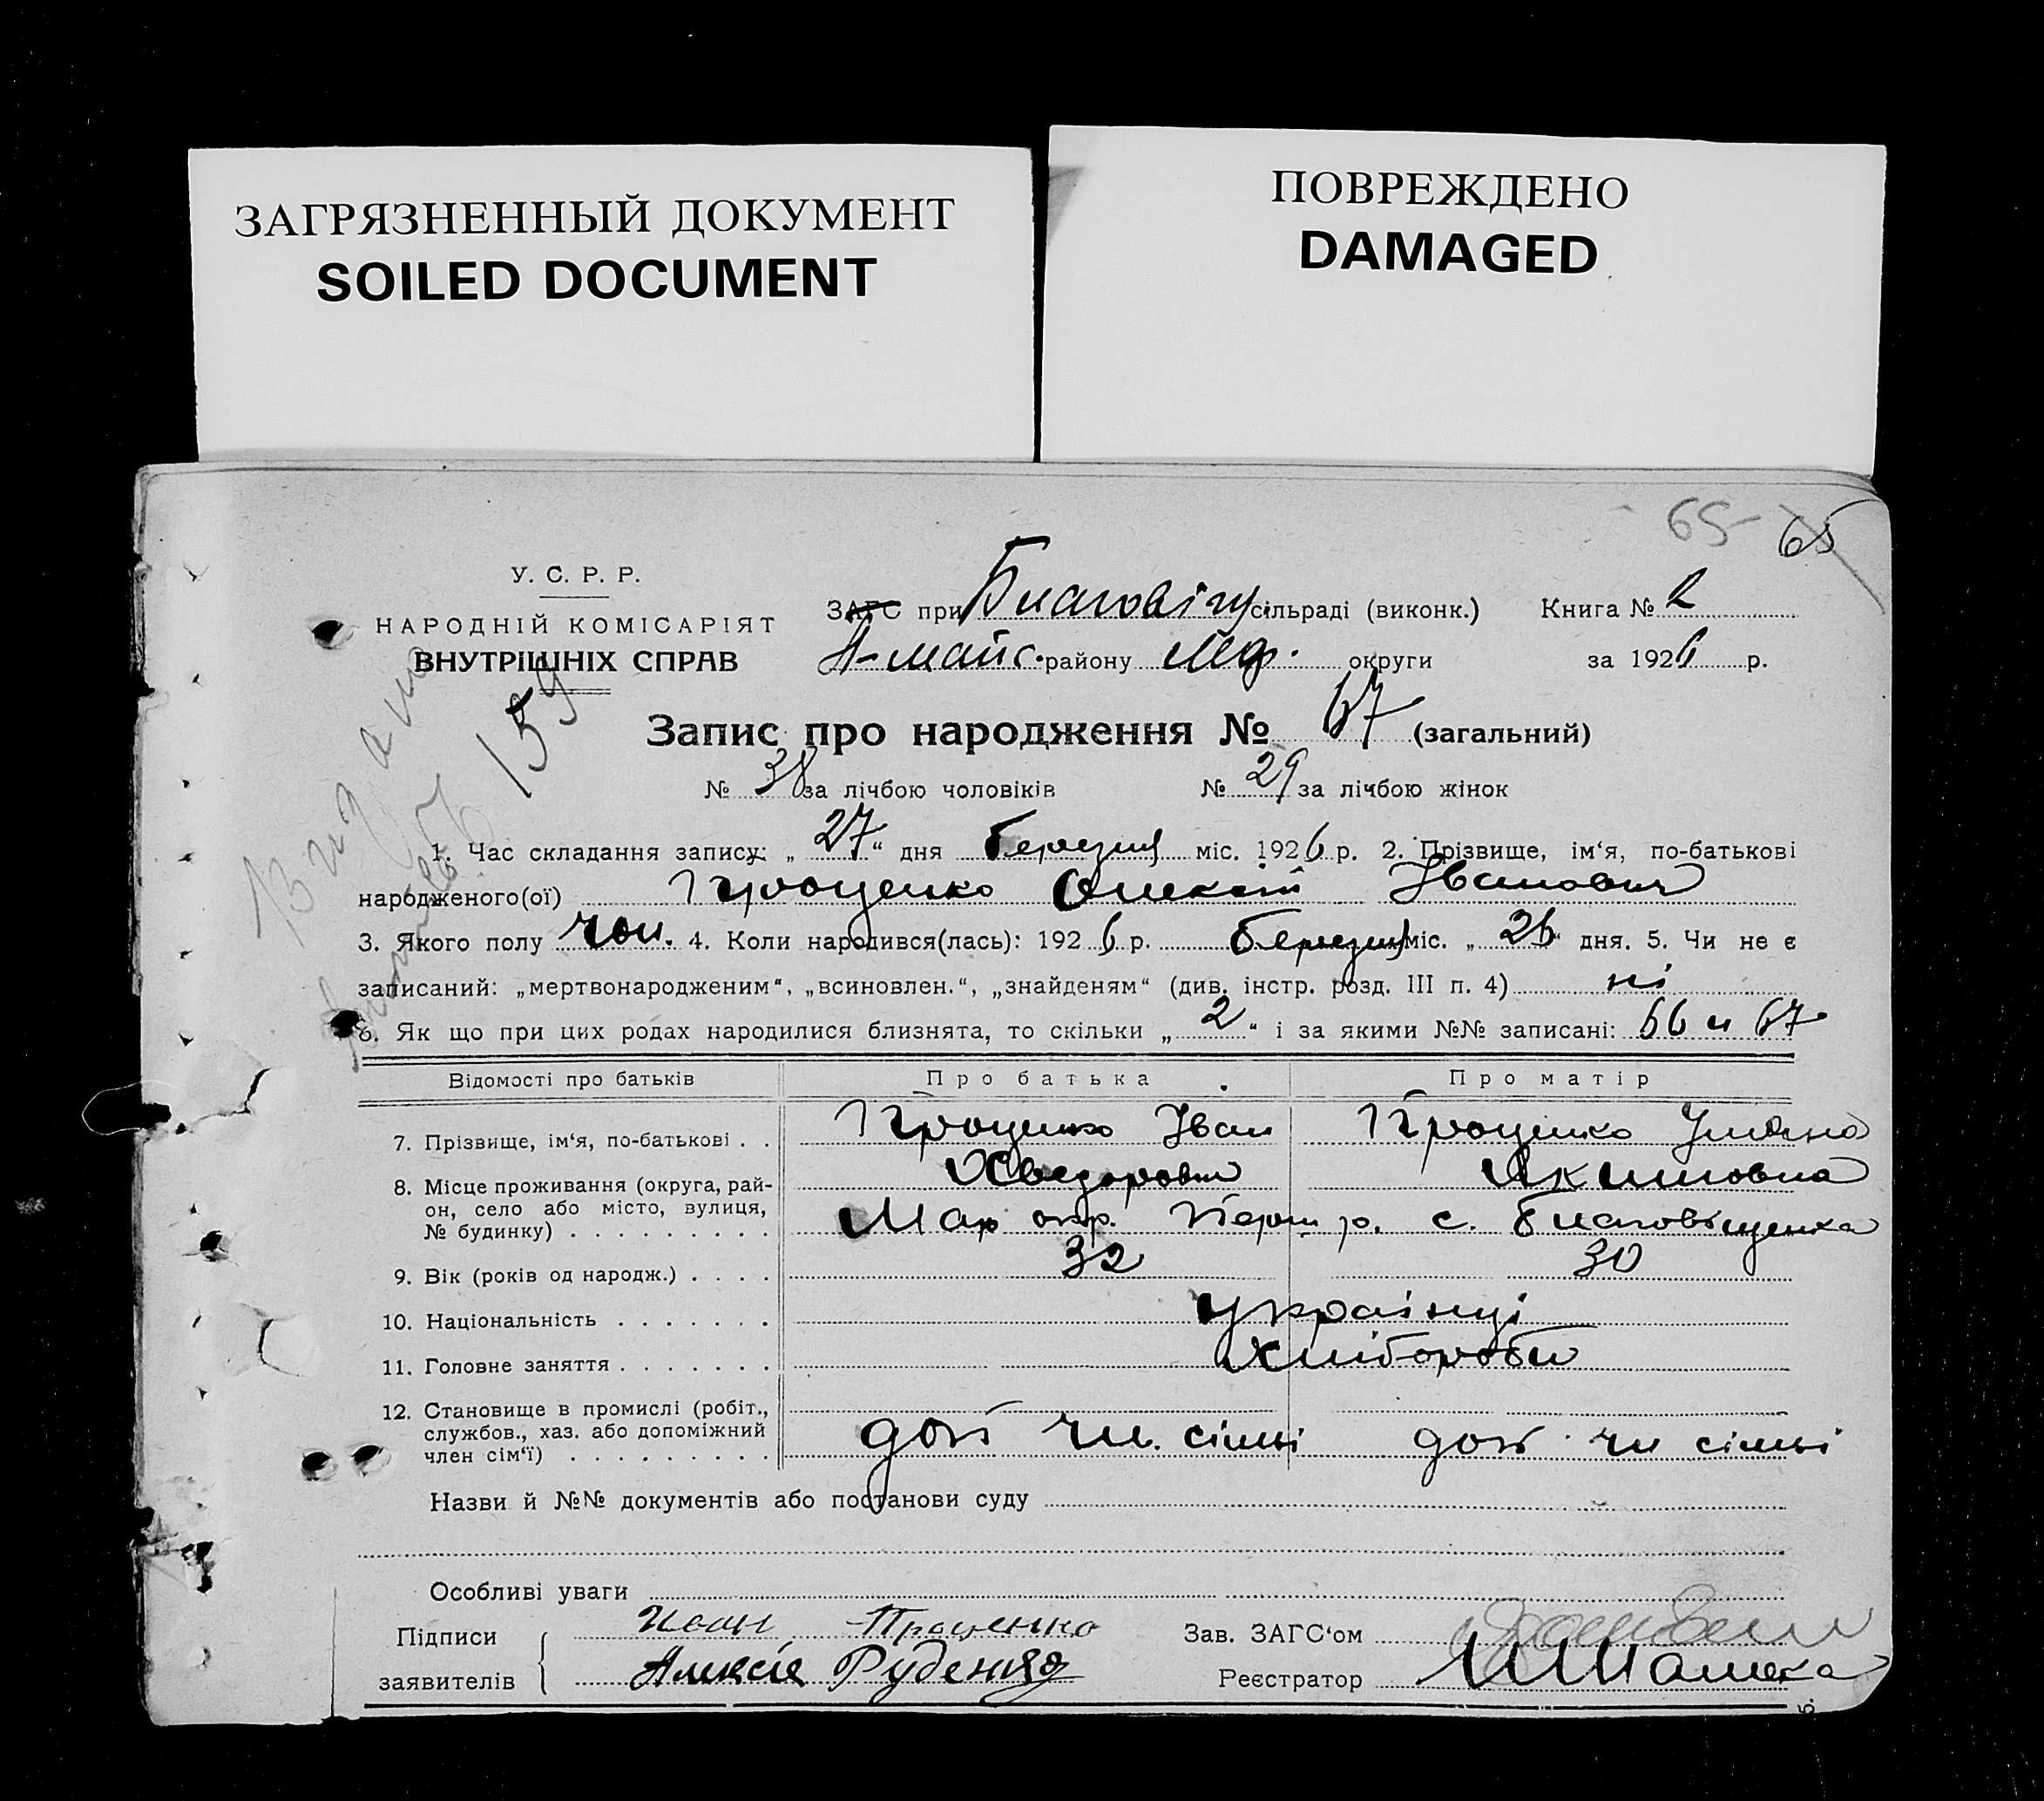 ЗАГРЯЗНЕННЫЙ ДОКУМЕНТ
SOILED DOCUMENT
ПОВРЕЖДЕНО
DAMAGED
65 65
У. С. Р. Р.
НАРОДНІЙ КОМІСАРІЯТ
ВНУТРІШНІХ СПРАВ
159
ЗАГС при Благовіщ сільраді (виконк.) Книга № 2
П-майс. району Мар. округи за 1926 р.
Запис про народження № 67 (загальний)
№ 38 за лічбою чоловіків № 29 за лічбою жінок
1. Час складання запису: „27“ дня березня міс. 1926 р. 2. Прізвище, ім‘я, по-батькові
народженого(ої) Проценко Олексій Іванович
3. Якого полу чол. 4. Коли народився(лась): 1926 р. березня міс. „26“ дня. 5. Чи не є
записаний: „мертвонародженим“, „всиновлен.“, „знайденям“ (див. інстр. розд. III п. 4) ні
6. Як що при цих родах народилися близнята, то скільки „2“ і за якими №№ записані: 66 и 67
Відомості про батьків Про батька Про матір
7. Прізвище, ім‘я, по-батькові . . Проценко Іван Проценко Уляна
Хведорович Якимовна
8. Місце проживання (округа, рай-
он, село або місто, вулиця,
№ будинку) . . . . . . . . . Мар окр. Перш р. с. Благовіщенка
9. Вік (років од народж.) . . . . 32 30
10. Національність . . . . . . . українці
11. Головне заняття . . . . . . . Хлібороби
12. Становище в промислі (робіт.,
службов., хаз. або допоміжний
член сім‘ї) . . . . . . . . . доп чл. сімьі доп чл сімьі
Назви й №№ документів або постанови суду
Особливі уваги
Підписи
заявителів
Иван Проценко
Алексія Руденко
Зав. ЗАГС‘ом
Реєстратор